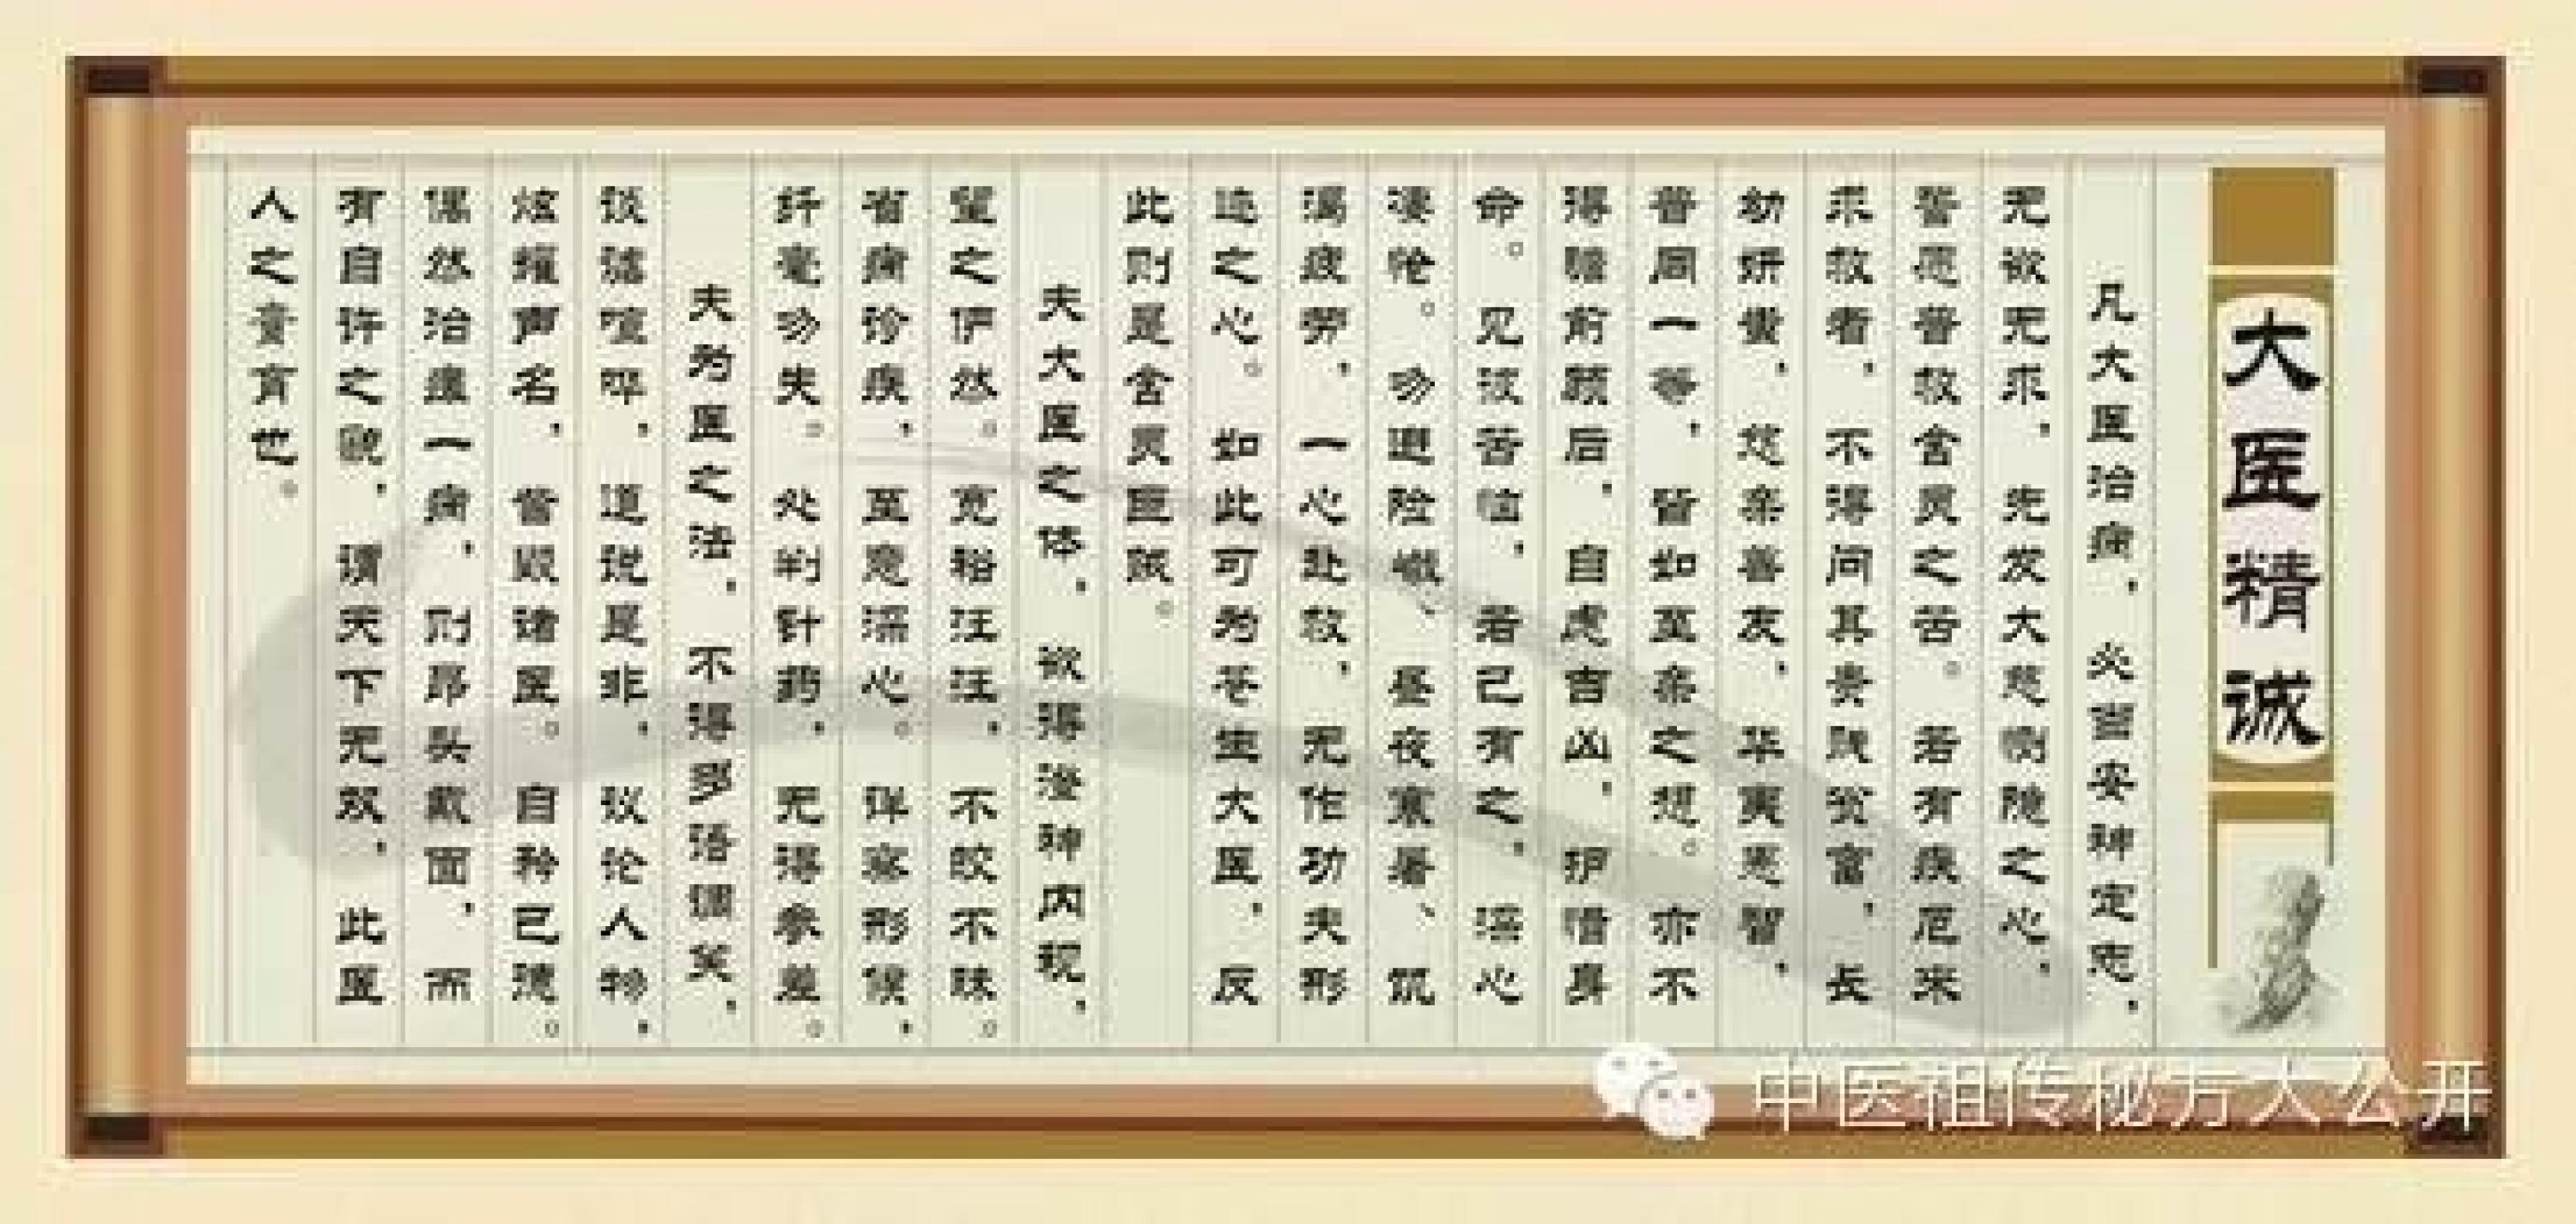 大医精诚
凡大医治病，必当安神定志，
无欲无求，先发大慈恻隐之心，
誓愿普救含灵之苦。若有疾厄来
求救者，不得问其贵贱贫富，长
幼妍蚩，怨亲善友，华夷愚智，
普同一等，皆如至亲之想。亦不
得瞻前顾后，自虑吉凶，护惜身
命。见彼苦恼，若己有之，深心
凄怆。勿避险巇、昼夜寒暑、饥
渴疲劳，一心赴救，无作功夫形
迹之心。如此可为苍生大医，反
此则是含灵巨贼。
夫大医之体，欲得澄神内视，
望之俨然。宽裕汪汪，不皎不昧。
省病诊疾，至意深心。详察形候，
纤毫勿失。处判针药，无得参差。
夫为医之法，不得多语调笑，
谈谑喧哗，道说是非，议论人物，
炫耀声名，訾毁诸医。自矜己德。
偶然治瘥一病，则昂头戴面，而
有自许之貌，谓天下无双，此医
人之膏肓也。
中医祖传秘方大公开